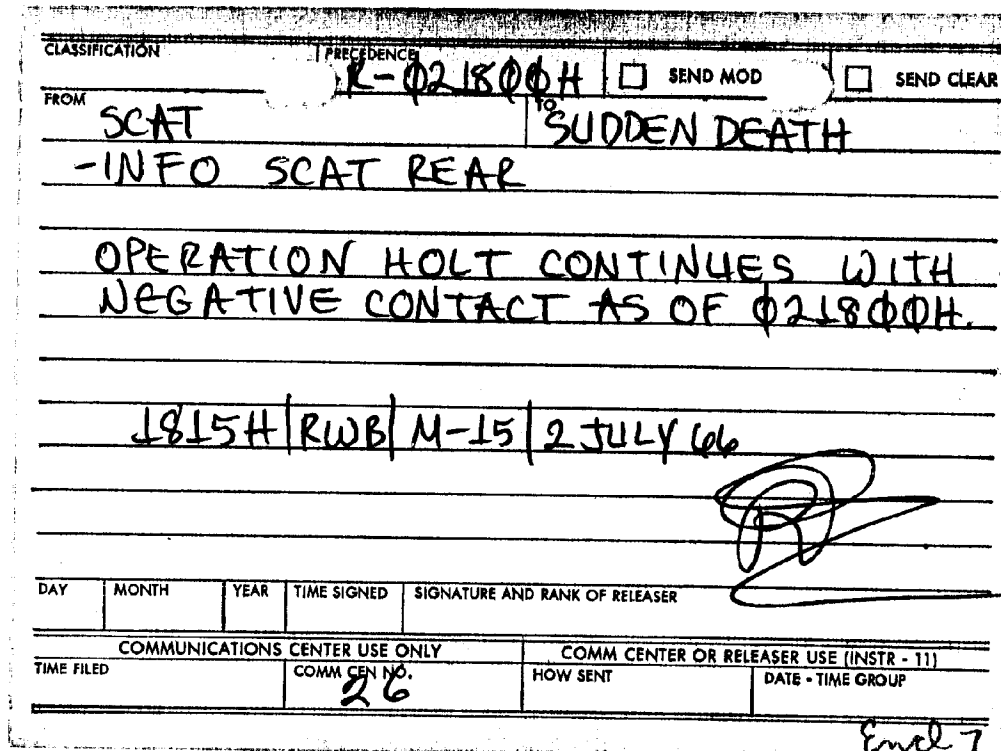 CLASSIFICATION PRECEDENCE R-021800H SEND MOD SEND CLEAR
FROM SCAT TO SUDDEN DEATH
-INFO SCAT REAR
OPERATION HOLT CONTINUES WITH
NEGATIVE CONTACT AS OF 021800H.
1815H|RWB|M-15|2 JULY 66
DAY MONTH YEAR TIME SIGNED SIGNATURE AND RANK OF RELEASER
COMMUNICATIONS CENTER USE ONLY COMM CENTER OR RELEASER USE (INSTR - 11)
TIME FILED COMM CEN NO. 26 HOW SENT DATE - TIME GROUP
Encl 7